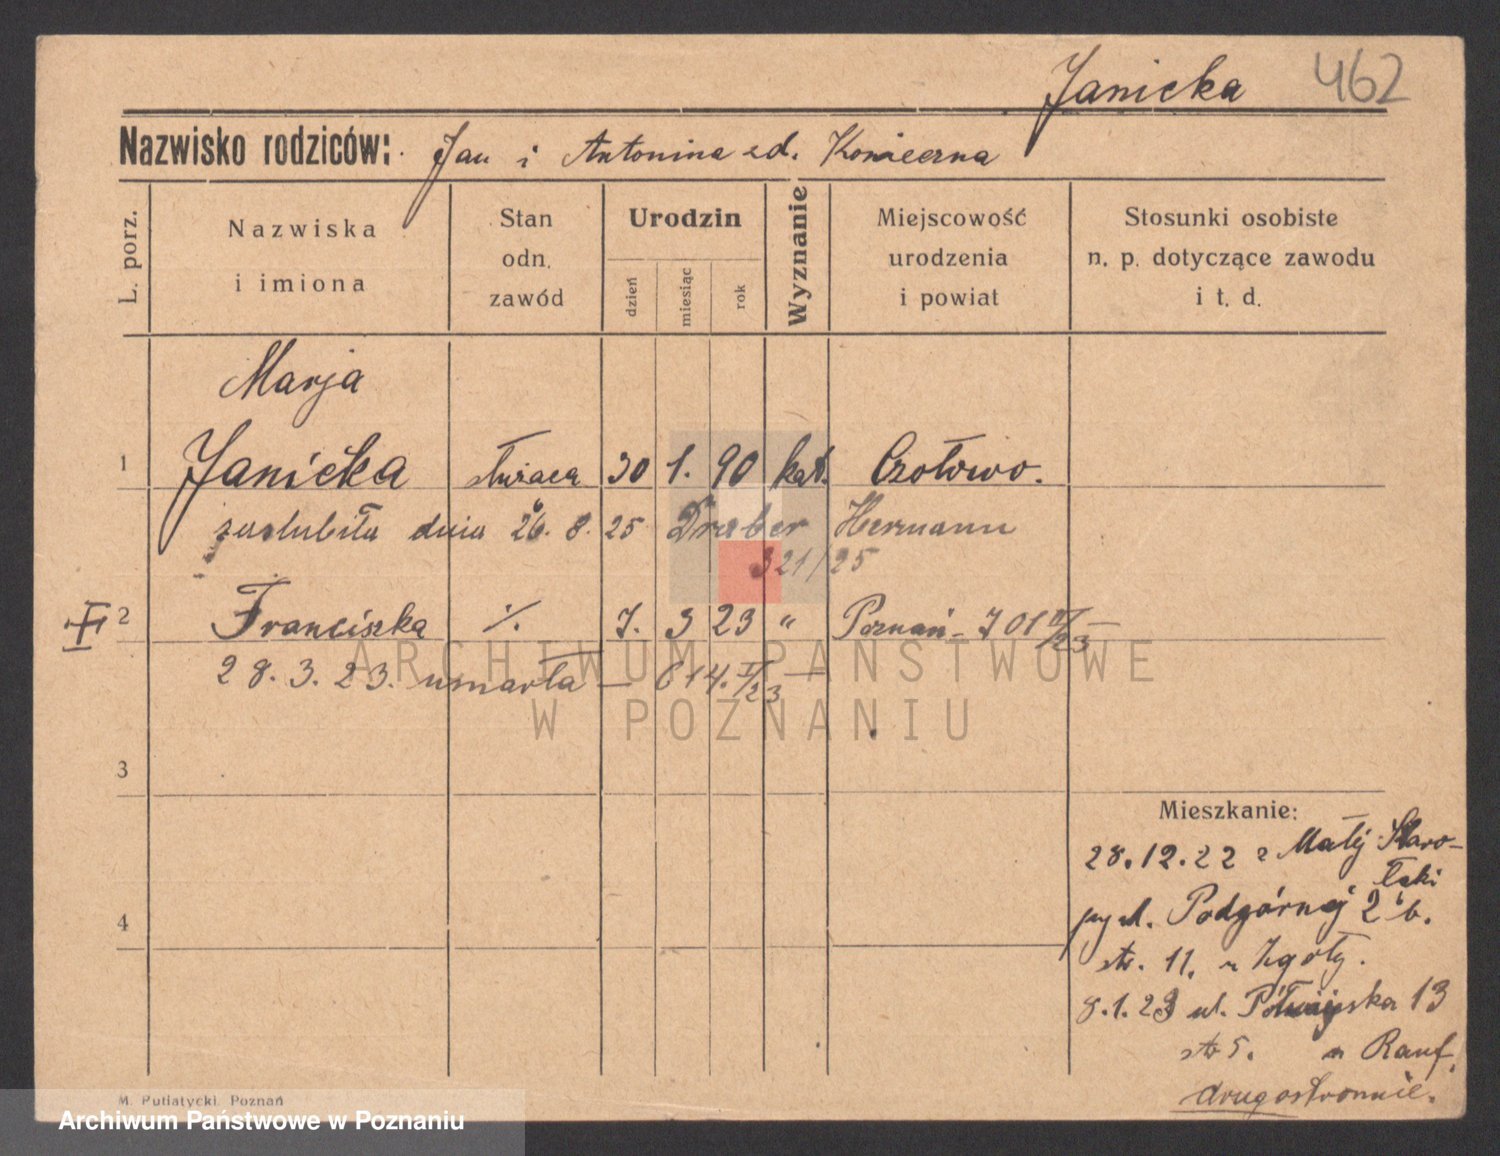 Janicka 462
Nazwisko rodziców: Jan i Antonina zd. Konieczna
L. porz.
Nazwiska
i imiona
Stan
odn.
zawód
Urodzin
dzień
miesiąc
rok
Wyznanie
Miejscowość
urodzenia
i powiat
Stosunki osobiste
n. p. dotyczące zawodu
i t. d.
Marja
1 Janicka służąca 30 1. 90 kat. Czołowo.
zaślubiła dnia 26. 8. 25 Draber Hermann
321/25
2 Franciszka ./. 7. 3 23 " Poznań - 701 II/23 -
28. 3. 23. umarła - 614. I/23 -
3
4
Mieszkanie:
28.12.22 z Małej Staro-
łęki
przy ul. Podgórnej 2 b.
str. 11. u Zgoły.
8.1.23 ul. Półwiejska 13
str 5. u Rauf.
drugostronnie.
M. Putiatycki, Poznań
ARCHIWUM PAŃSTWOWE
W POZNANIU
Archiwum Państwowe w Poznaniu